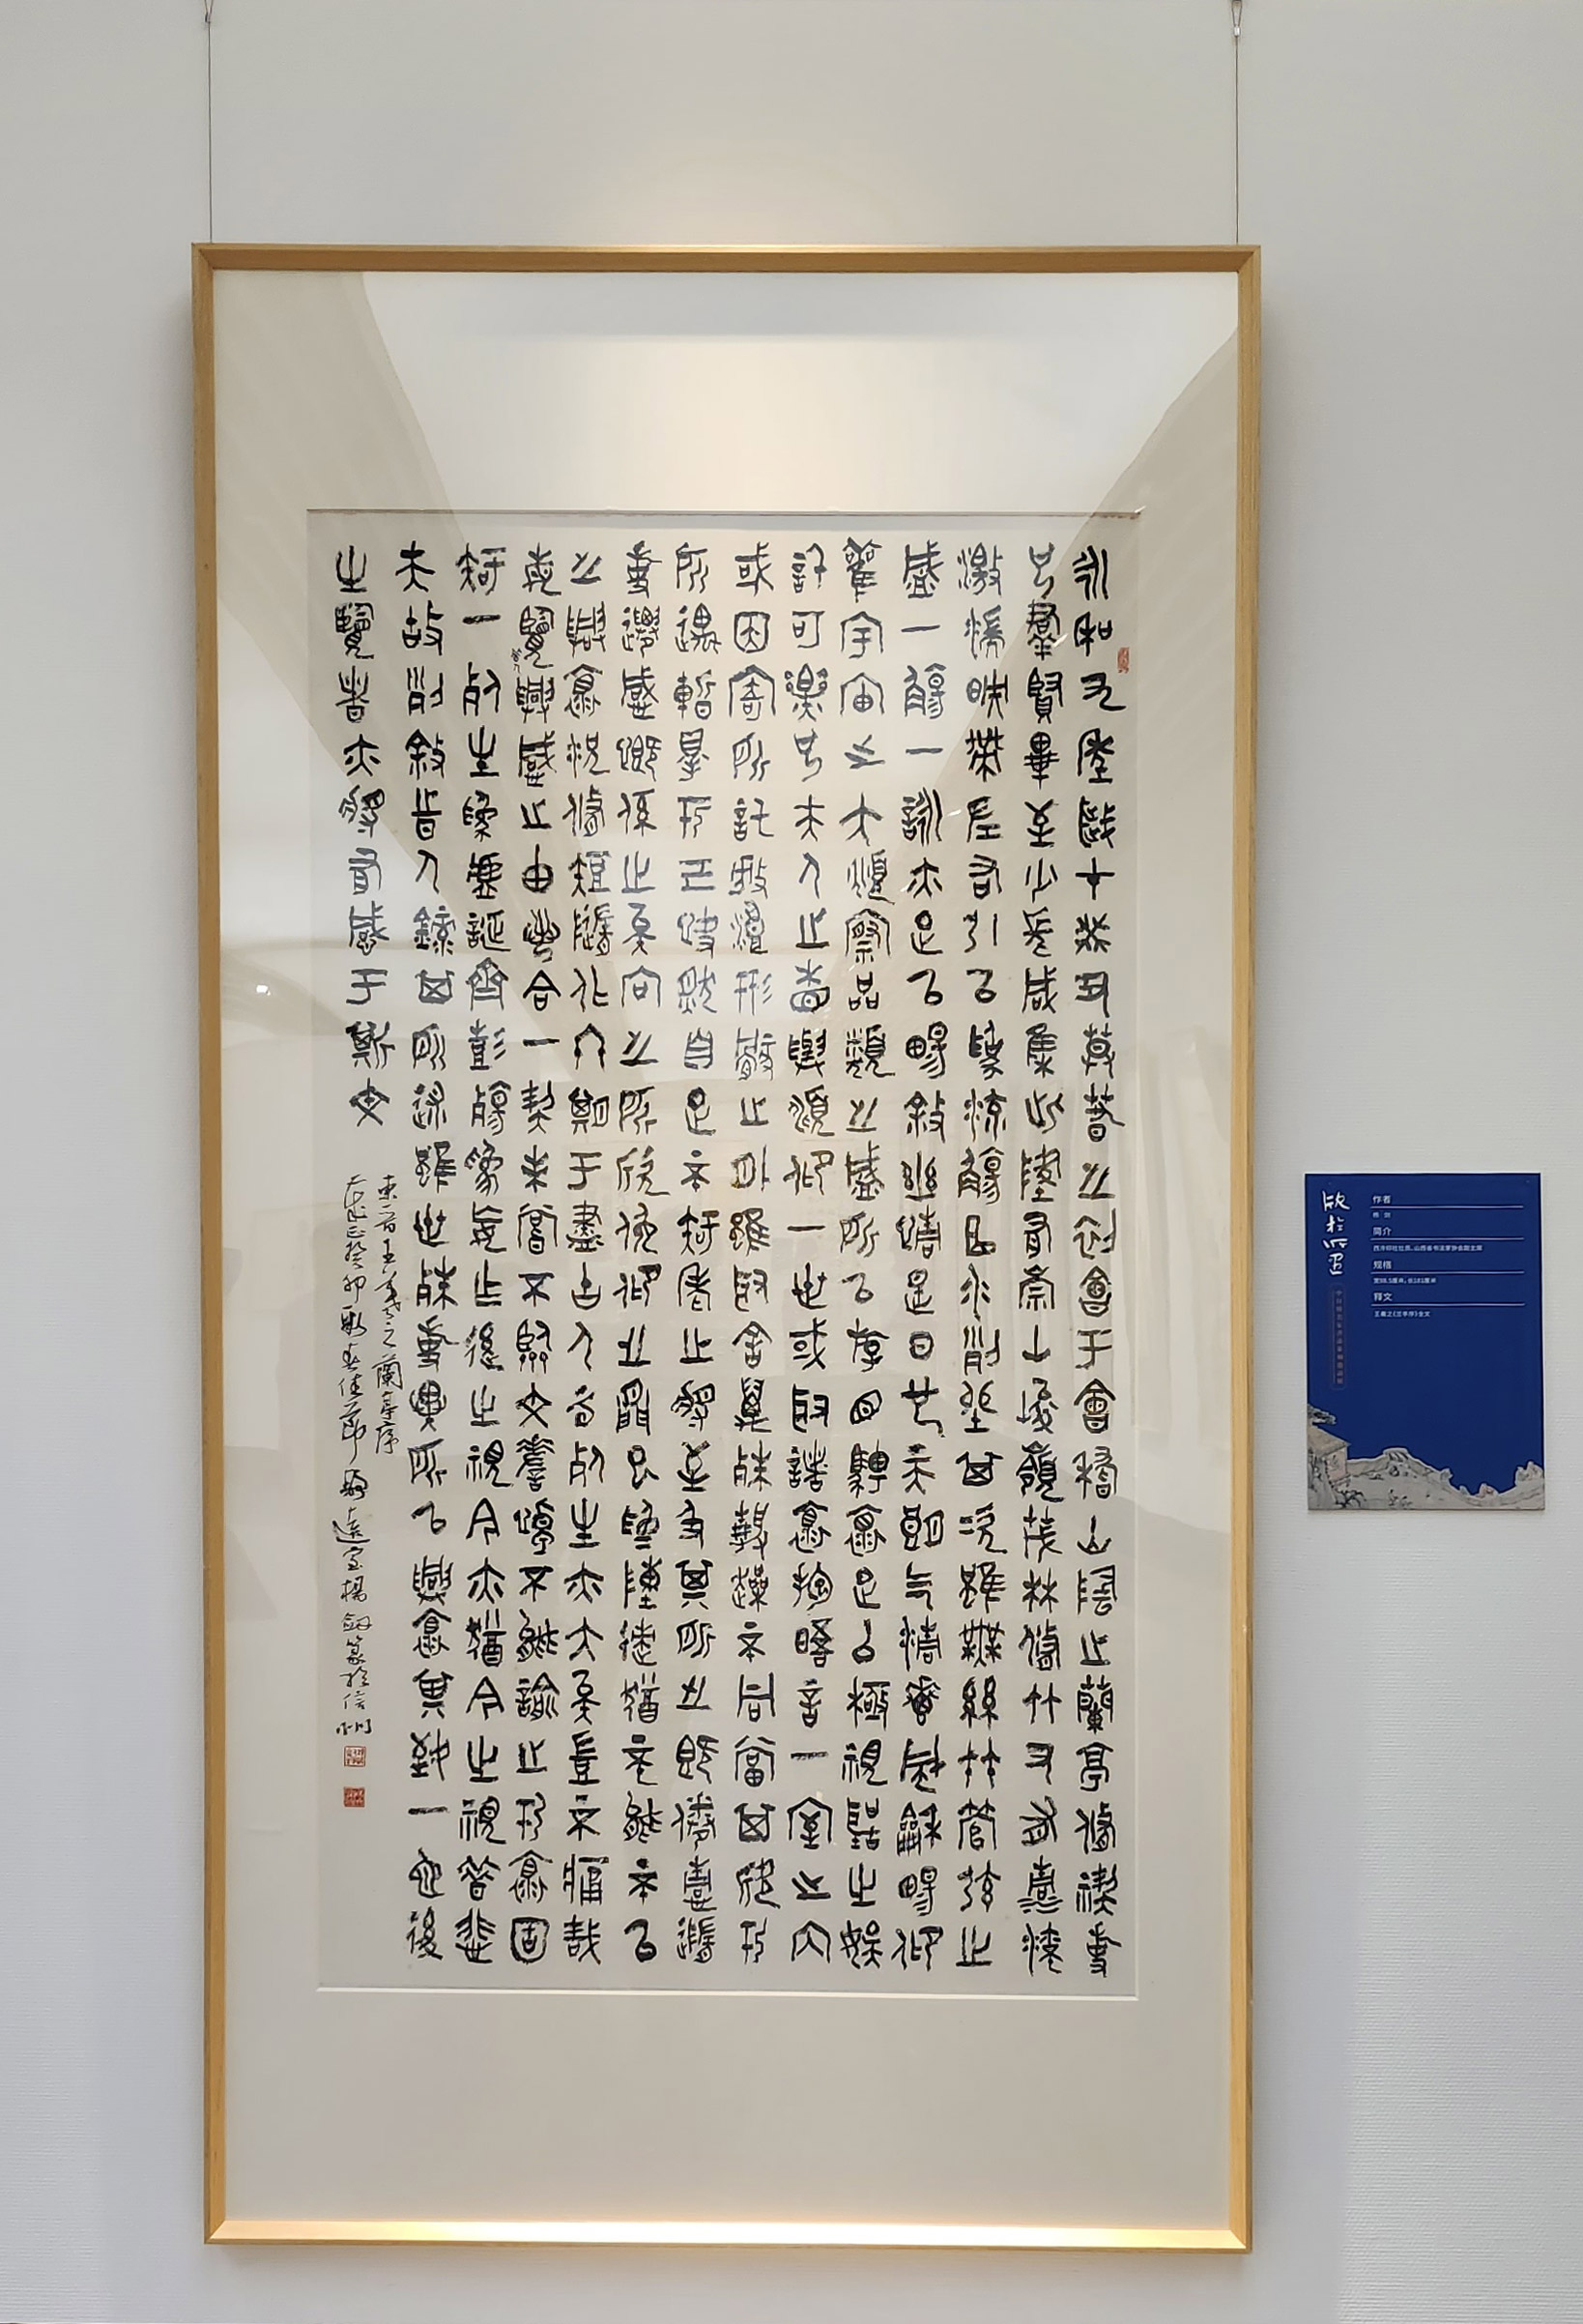 永和九年歲在癸丑莫春之初會于會稽山陰之蘭亭脩禊事
也群賢畢至少長咸集此地有崇山峻嶺茂林脩竹又有清流
激湍映帶左右引以為流觴曲水列坐其次雖無絲竹管弦之
盛一觴一詠亦足以暢敘幽情是日也天朗氣清惠風和暢仰
觀宇宙之大俯察品類之盛所以游目騁懷足以極視聽之娛
信可樂也夫人之相與俯仰一世或取諸懷抱晤言一室之內
或因寄所託放浪形骸之外雖取舍萬殊靜躁不同當其欣於
所遇暫得於己快然自足不知老之將至及其所之既倦情隨
事遷感慨係之矣向之所欣俛仰之間以為陳迹猶不能不以
之興懷況脩短隨化終期于盡古人云死生亦大矣豈不痛哉
每覽昔人興感之由若合一契未嘗不臨文嗟悼不能喻之於懷固
知一死生為虛誕齊彭殤為妄作後之視今亦猶今之視昔悲
夫故列敘時人錄其所述雖世殊事異所以興懷其致一也後
之覽者亦將有感于斯文
東晉王羲之蘭亭序
癸卯新春佳節遠室楊劍篆於信州
欣於所
作者
杨剑
简介
西泠印社社员、山西省书法家协会副主席
规格
宽98.5厘米,长181厘米
释文
王羲之《兰亭序》全文